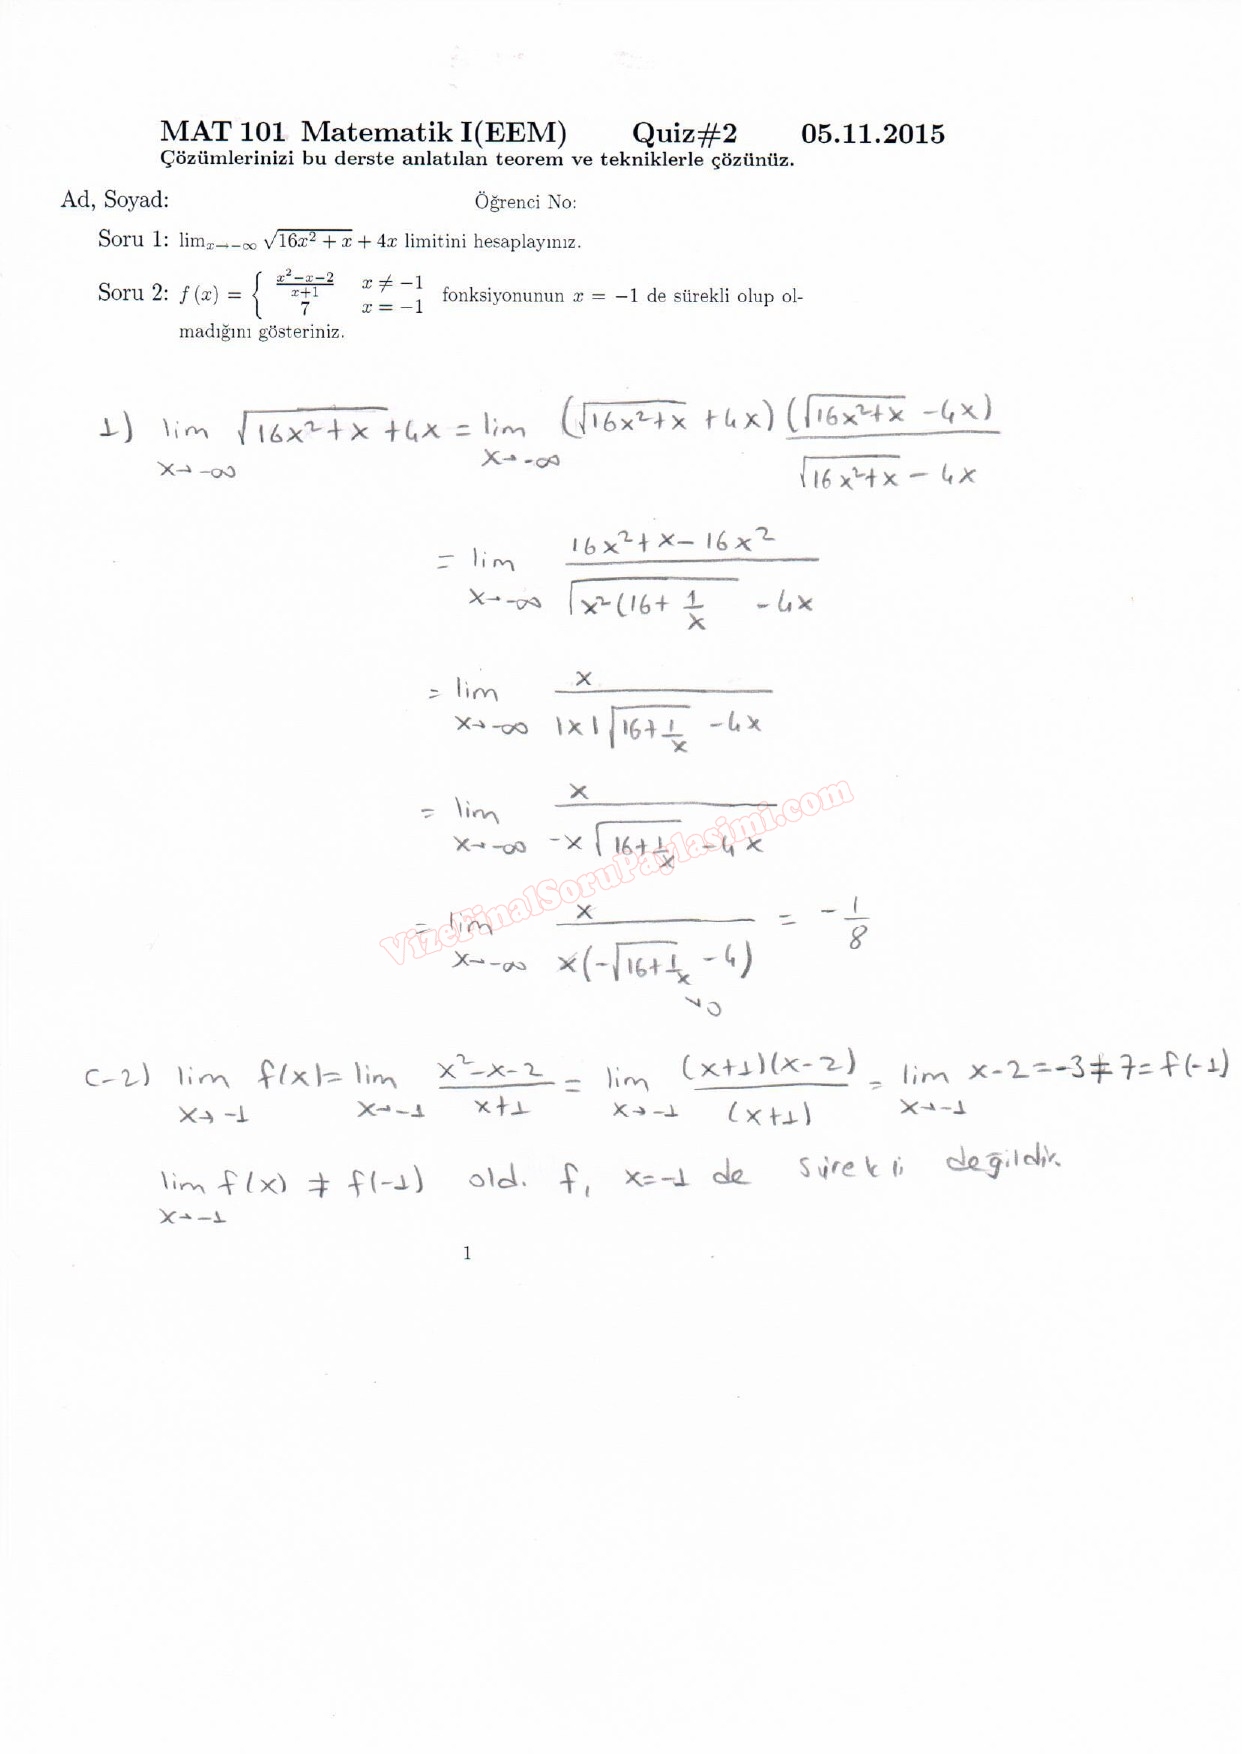 MAT 101 Matematik I(EEM) Quiz#2 05.11.2015
Çözümlerinizi bu derste anlatılan teorem ve tekniklerle çözünüz.
Ad, Soyad: Öğrenci No:
Soru 1: lim_{x→−∞} √(16x² + x) + 4x limitini hesaplayınız.
Soru 2: f (x) = { (x²−x−2)/(x+1) x ≠ −1
7 x = −1 fonksiyonunun x = −1 de sürekli olup ol-
madığını gösteriniz.
1) lim_{x→-∞} √(16x²+x) +4x = lim_{x→-∞} (√(16x²+x) + 4x) (√(16x²+x) -4x) / (√(16x²+x) - 4x)
= lim_{x→-∞} (16x²+x-16x²) / (√(x²(16+1/x) - 4x)
= lim_{x→-∞} x / (|x|√(16+1/x) -4x)
= lim_{x→-∞} x / (-x√(16+1/x) -4x)
= lim_{x→-∞} x / (x(-√(16+1/x) -4)) = -1/8
↘0
VizeFinalSoruPaylasimi.com
C-2) lim_{x→-1} f(x)= lim_{x→-1} (x²-x-2)/(x+1) = lim_{x→-1} (x+1)(x-2)/(x+1) = lim_{x→-1} x-2=-3≠7=f(-1)
lim_{x→-1} f(x) ≠ f(-1) old. f, x=-1 de sürekli değildir.
1